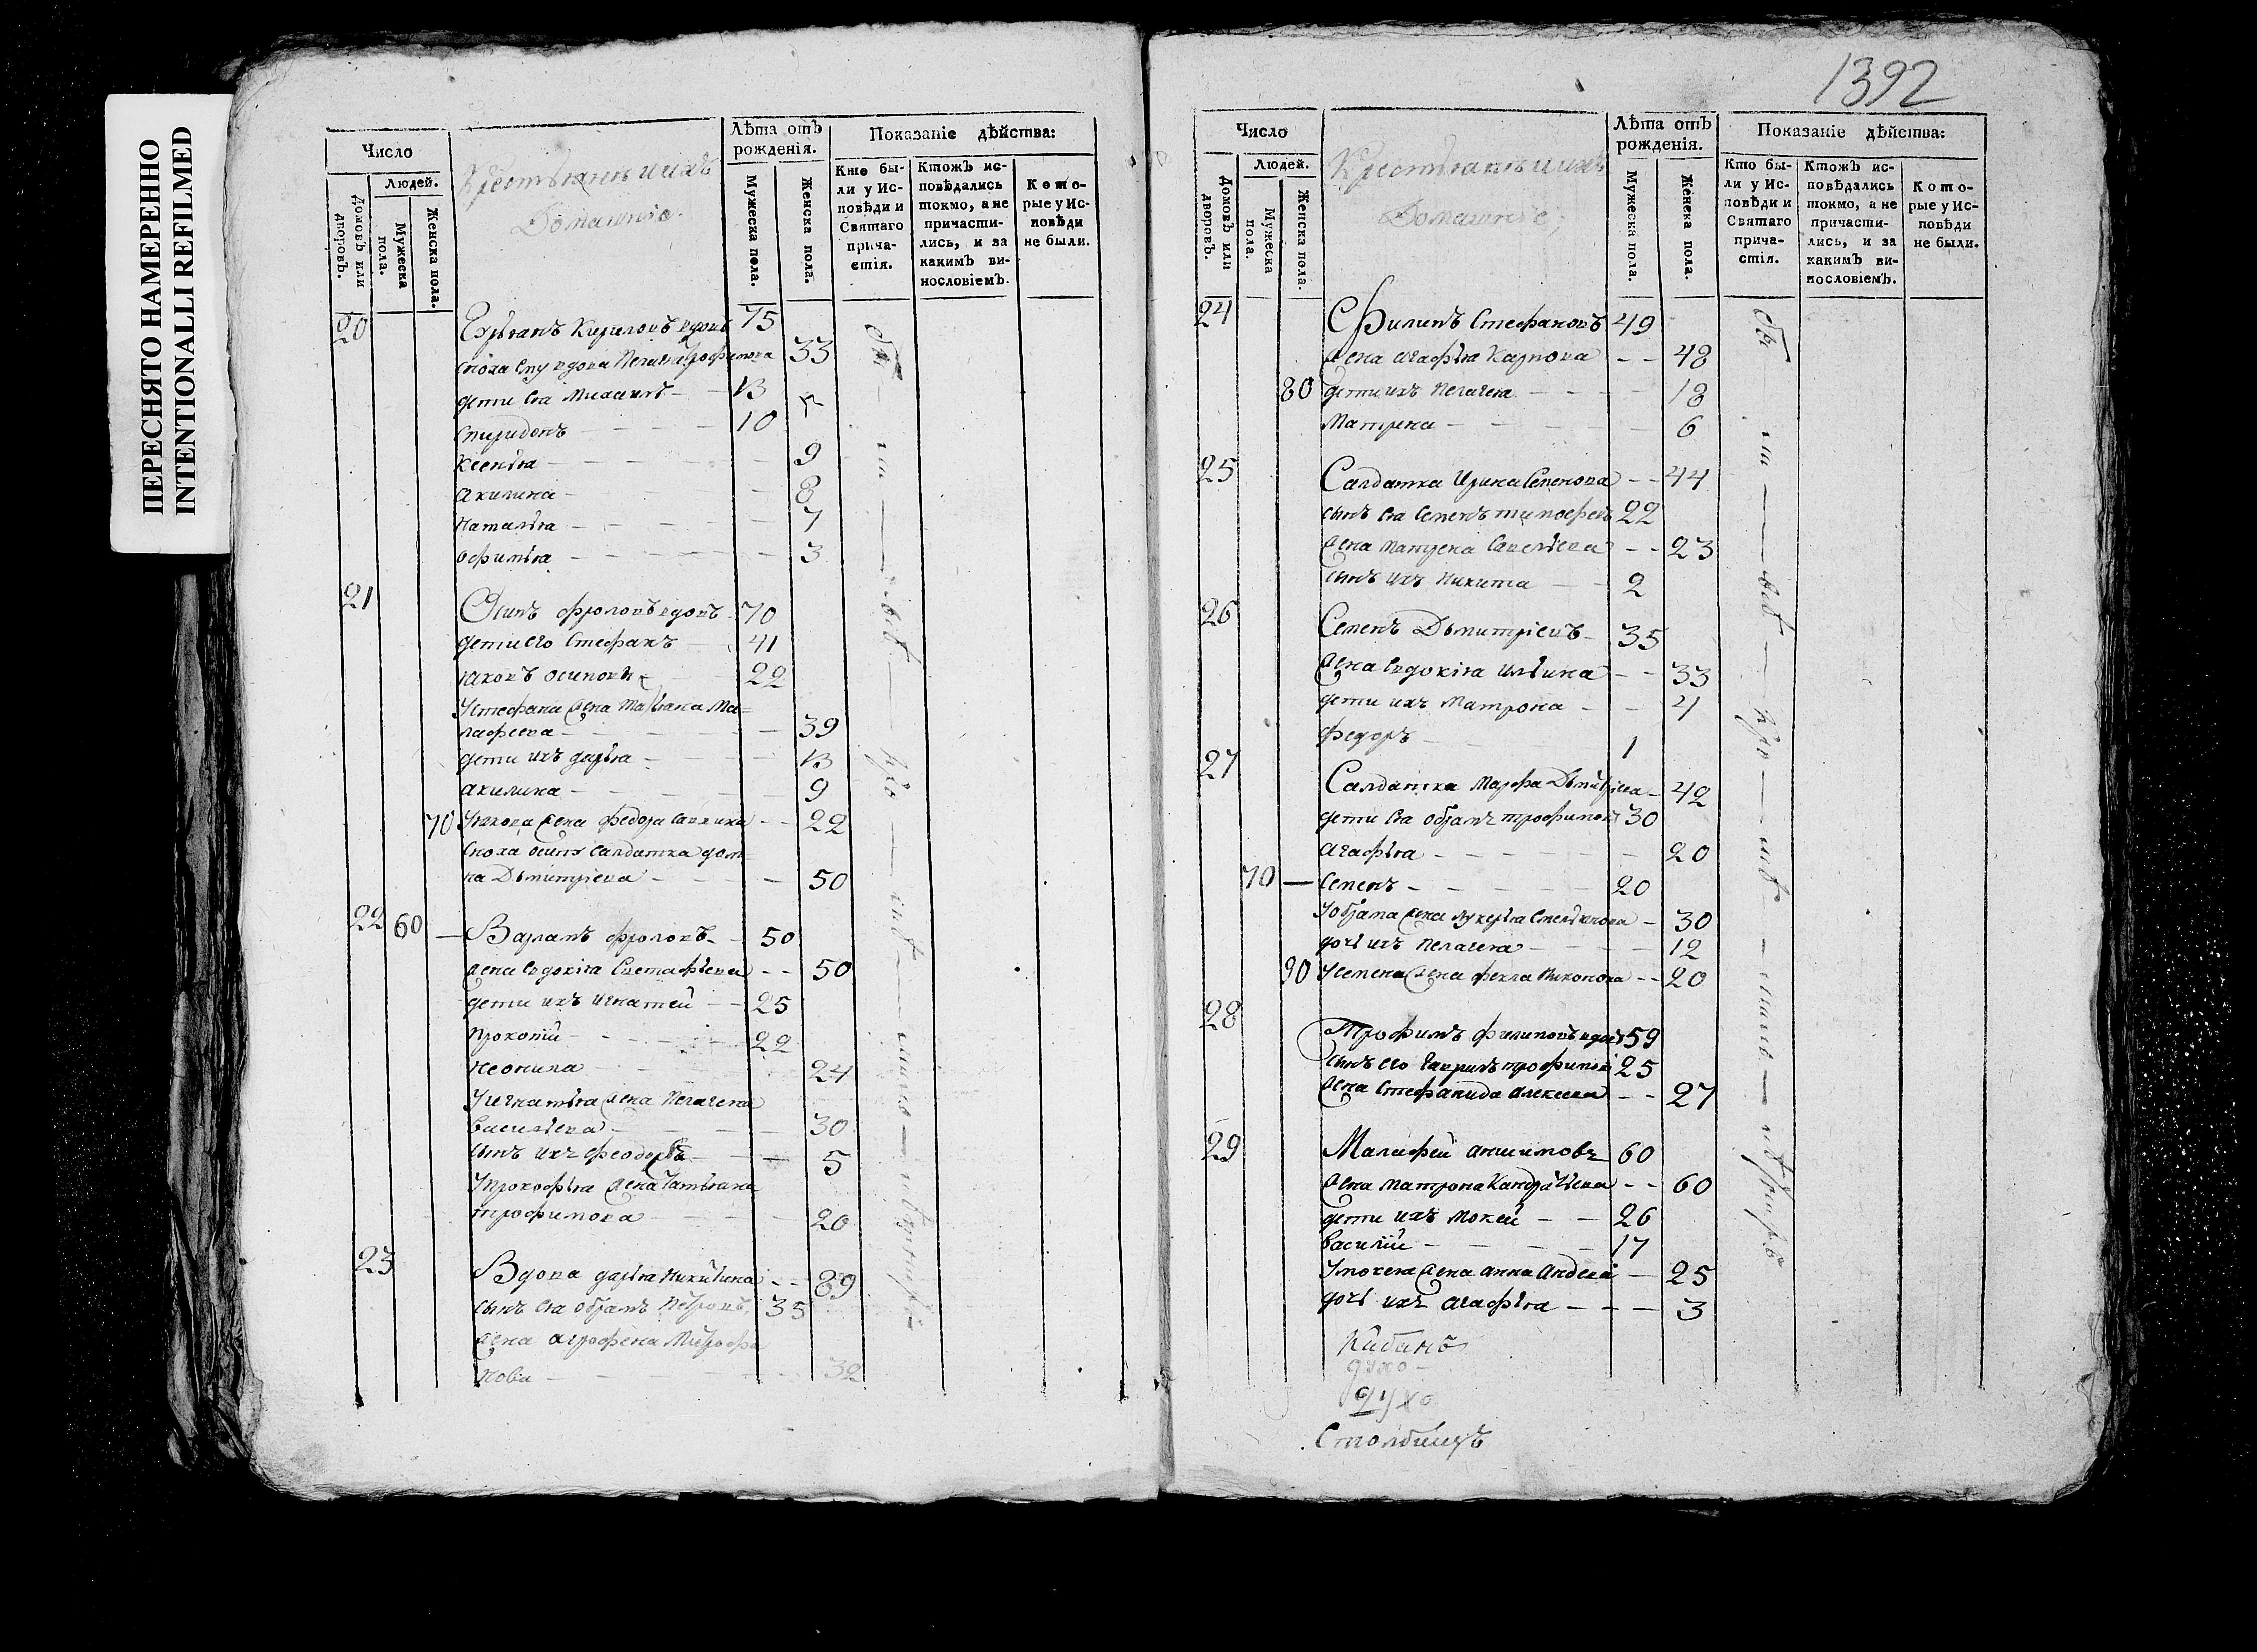 ПЕРЕСНЯТО НАМЕРЕННО
INTENTIONALLI REFILMED
Число
Людей.
Домовъ или дворовъ.
Мужеска пола.
Женска пола.
Крестьяне и ихъ
Домашніе.
Лѣта отъ рожденія.
Мужеска пола.
Женска пола.
Показаніе дѣйства:
Кто бы-
ли у Ис-
повѣди и
Святаго
прича-
стія.
Ктожъ ис-
повѣдались
токмо, а не
причасти-
лись, и за
какимъ ви-
нословіемъ.
Кото-
рые у Ис-
повѣди
не были.
20 Кириловъ вдовъ 75
33
дети Ея Михаилъ 13
Спиридонъ 10
Ксенья 9
Акилина 8
Наталья 7
Офимья 3
21 Осипъ Фроловъ вдовъ 70
дети его Стефанъ 41
Яковъ Осиповъ 22
У Стефана жена Татьяна Ма=
лафеева 39
дети ихъ Дарья 13
Акилина 9
70 У Якова жена Федора Саввина 22
Сноха Осипа Салдатка Дом=
на Дьмитріева 50
22 60 — Варламъ Фроловъ 50
жена Евдокія Евстафьева 50
дети ихъ Игнатей 25
Прокопій 22
Неонила 24
У Игнатья жена Пелагея
Васильева 30
сынъ ихъ 5
У Прокофья жена Татьяна
Трофимова 20
23 Вдова Дарья Никитина 89
сынъ Ея Обрамъ Петровъ 35
жена Агрофена Митрофа
нова 32
1392
Число
Людей.
Домовъ или дворовъ.
Мужеска пола.
Женска пола.
Крестьяне и ихъ
Домашніе;
Лѣта отъ рожденія.
Мужеска пола.
Женска пола.
Показаніе дѣйства:
Кто бы-
ли у Ис-
повѣди и
Святаго
прича-
стія.
Ктожъ ис-
повѣдались
токмо, а не
причасти-
лись, и за
какимъ ви-
нословіемъ.
Кото-
рые у Ис-
повѣди
не были.
24 Филипъ Стефановъ 49
жена Агафья Карпова 48
80 дети ихъ Пелагея 18
Матрена 6
25 Салдатка Ирина Семенова 44
сынъ Ея Семенъ Тимофеевъ 22
жена Матрена Савельева 23
сынъ ихъ Никита 2
26 Семенъ Дьмитріевъ 35
жена Евдокія Ильина 33
дети ихъ Матрона 4
Федоръ 1
27 Салдатка Марфа Дьмитріева 42
дети Ея Обрамъ Трофимовъ 30
Агафья 20
70 — Семенъ 20
У Обрама жена Лукерья Емельянова 30
дочь ихъ Пелагея 12
90 У Семена жена Фекла Никонова 20
28 Трофимъ Филиповъ вдовъ 59
сынъ его Гаврилъ Трофимовъ 25
жена Стефанида Алексеева 27
29 Малафей Анисимовъ 60
жена Матрона Кандратьева 60
дети ихъ Мокей 26
Василій 17
У Мокея жена Анна Андреева 25
дочь ихъ Агафья 3
духо
духо
Столбецъ